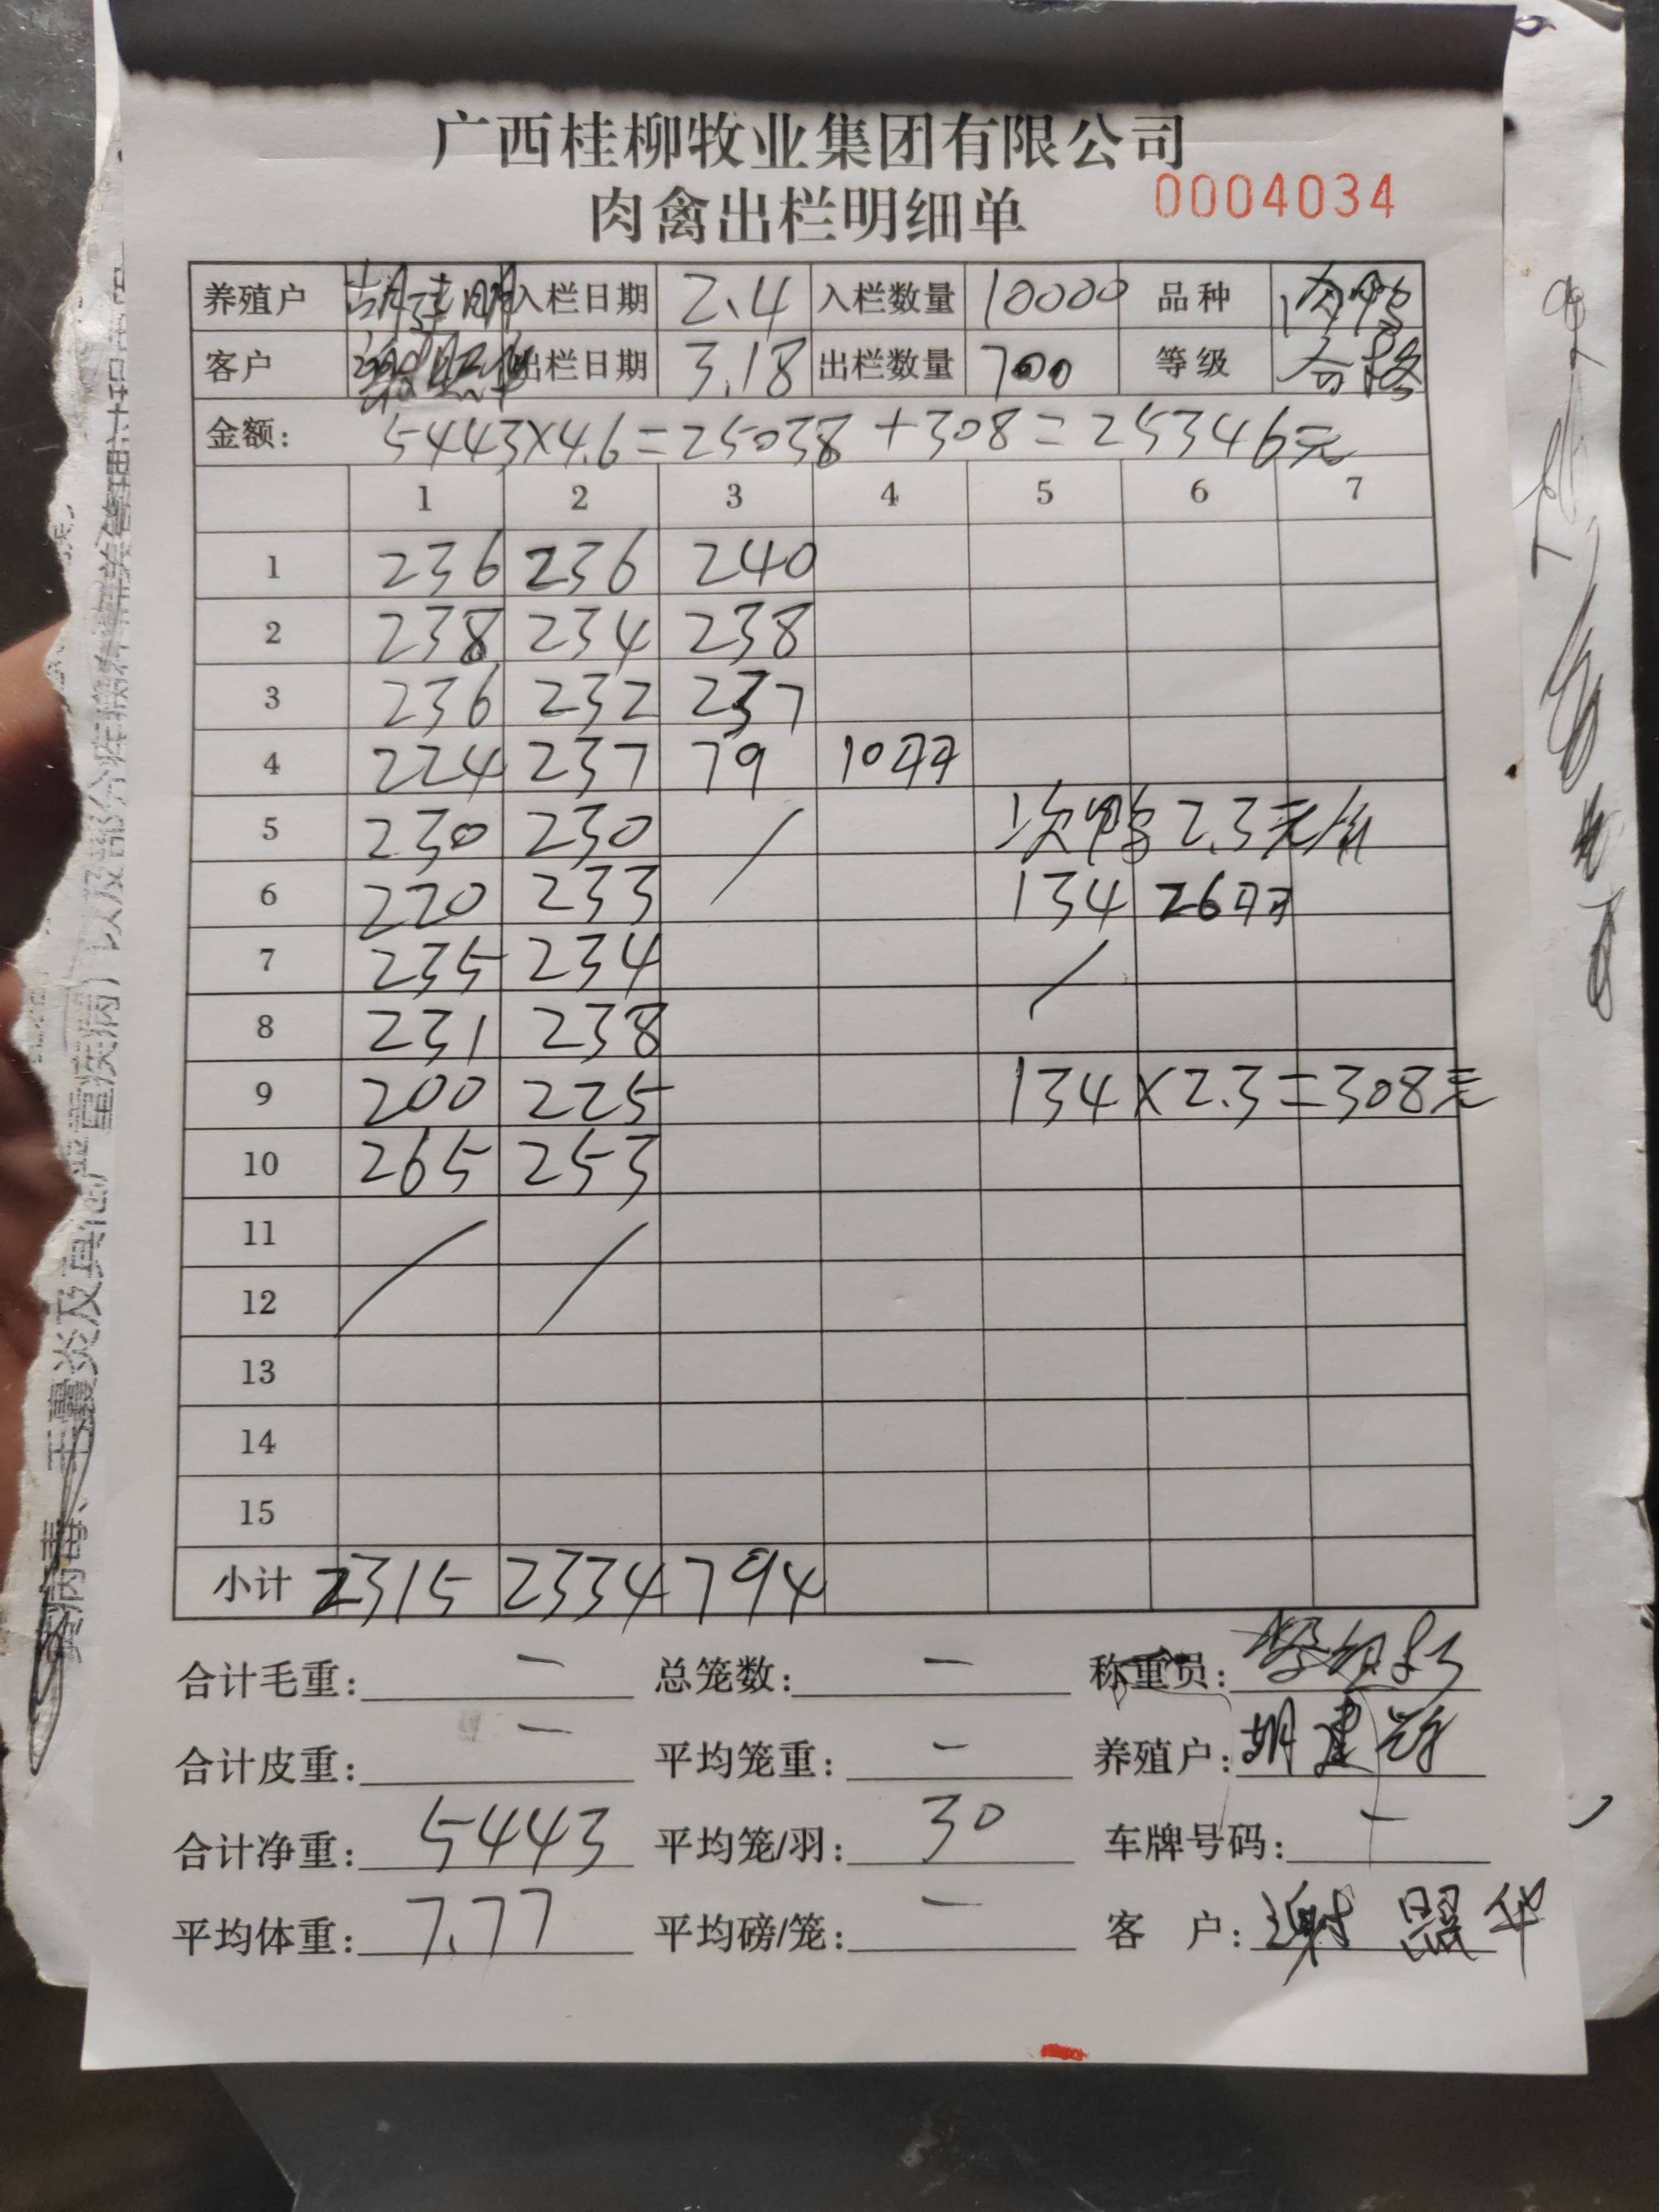 广西桂柳牧业集团有限公司
肉禽出栏明细单 0004034
养殖户 入栏日期 2.4 入栏数量 10000 品种 肉鸭
客户 出栏日期 3.18 出栏数量 700 等级 合格
金额: 5443×4.6=25038+308=25346元
1 2 3 4 5 6 7
1 236 236 240
2 238 234 238
3 236 232 237
4 224 237 79 10羽
5 230 230 / 次鸭2.3元/斤
6 220 233 134 26羽
7 235 234 /
8 231 238
9 200 225 134×2.3=308元
10 265 253
11 / /
12
13
14
15
小计 2315 2334 794
合计毛重: — 总笼数: — 称重员:
合计皮重: — 平均笼重: — 养殖户: 胡建
合计净重: 5443 平均笼/羽: 30 车牌号码: —
平均体重: 7.77 平均磅/笼: — 客 户: 谢照华